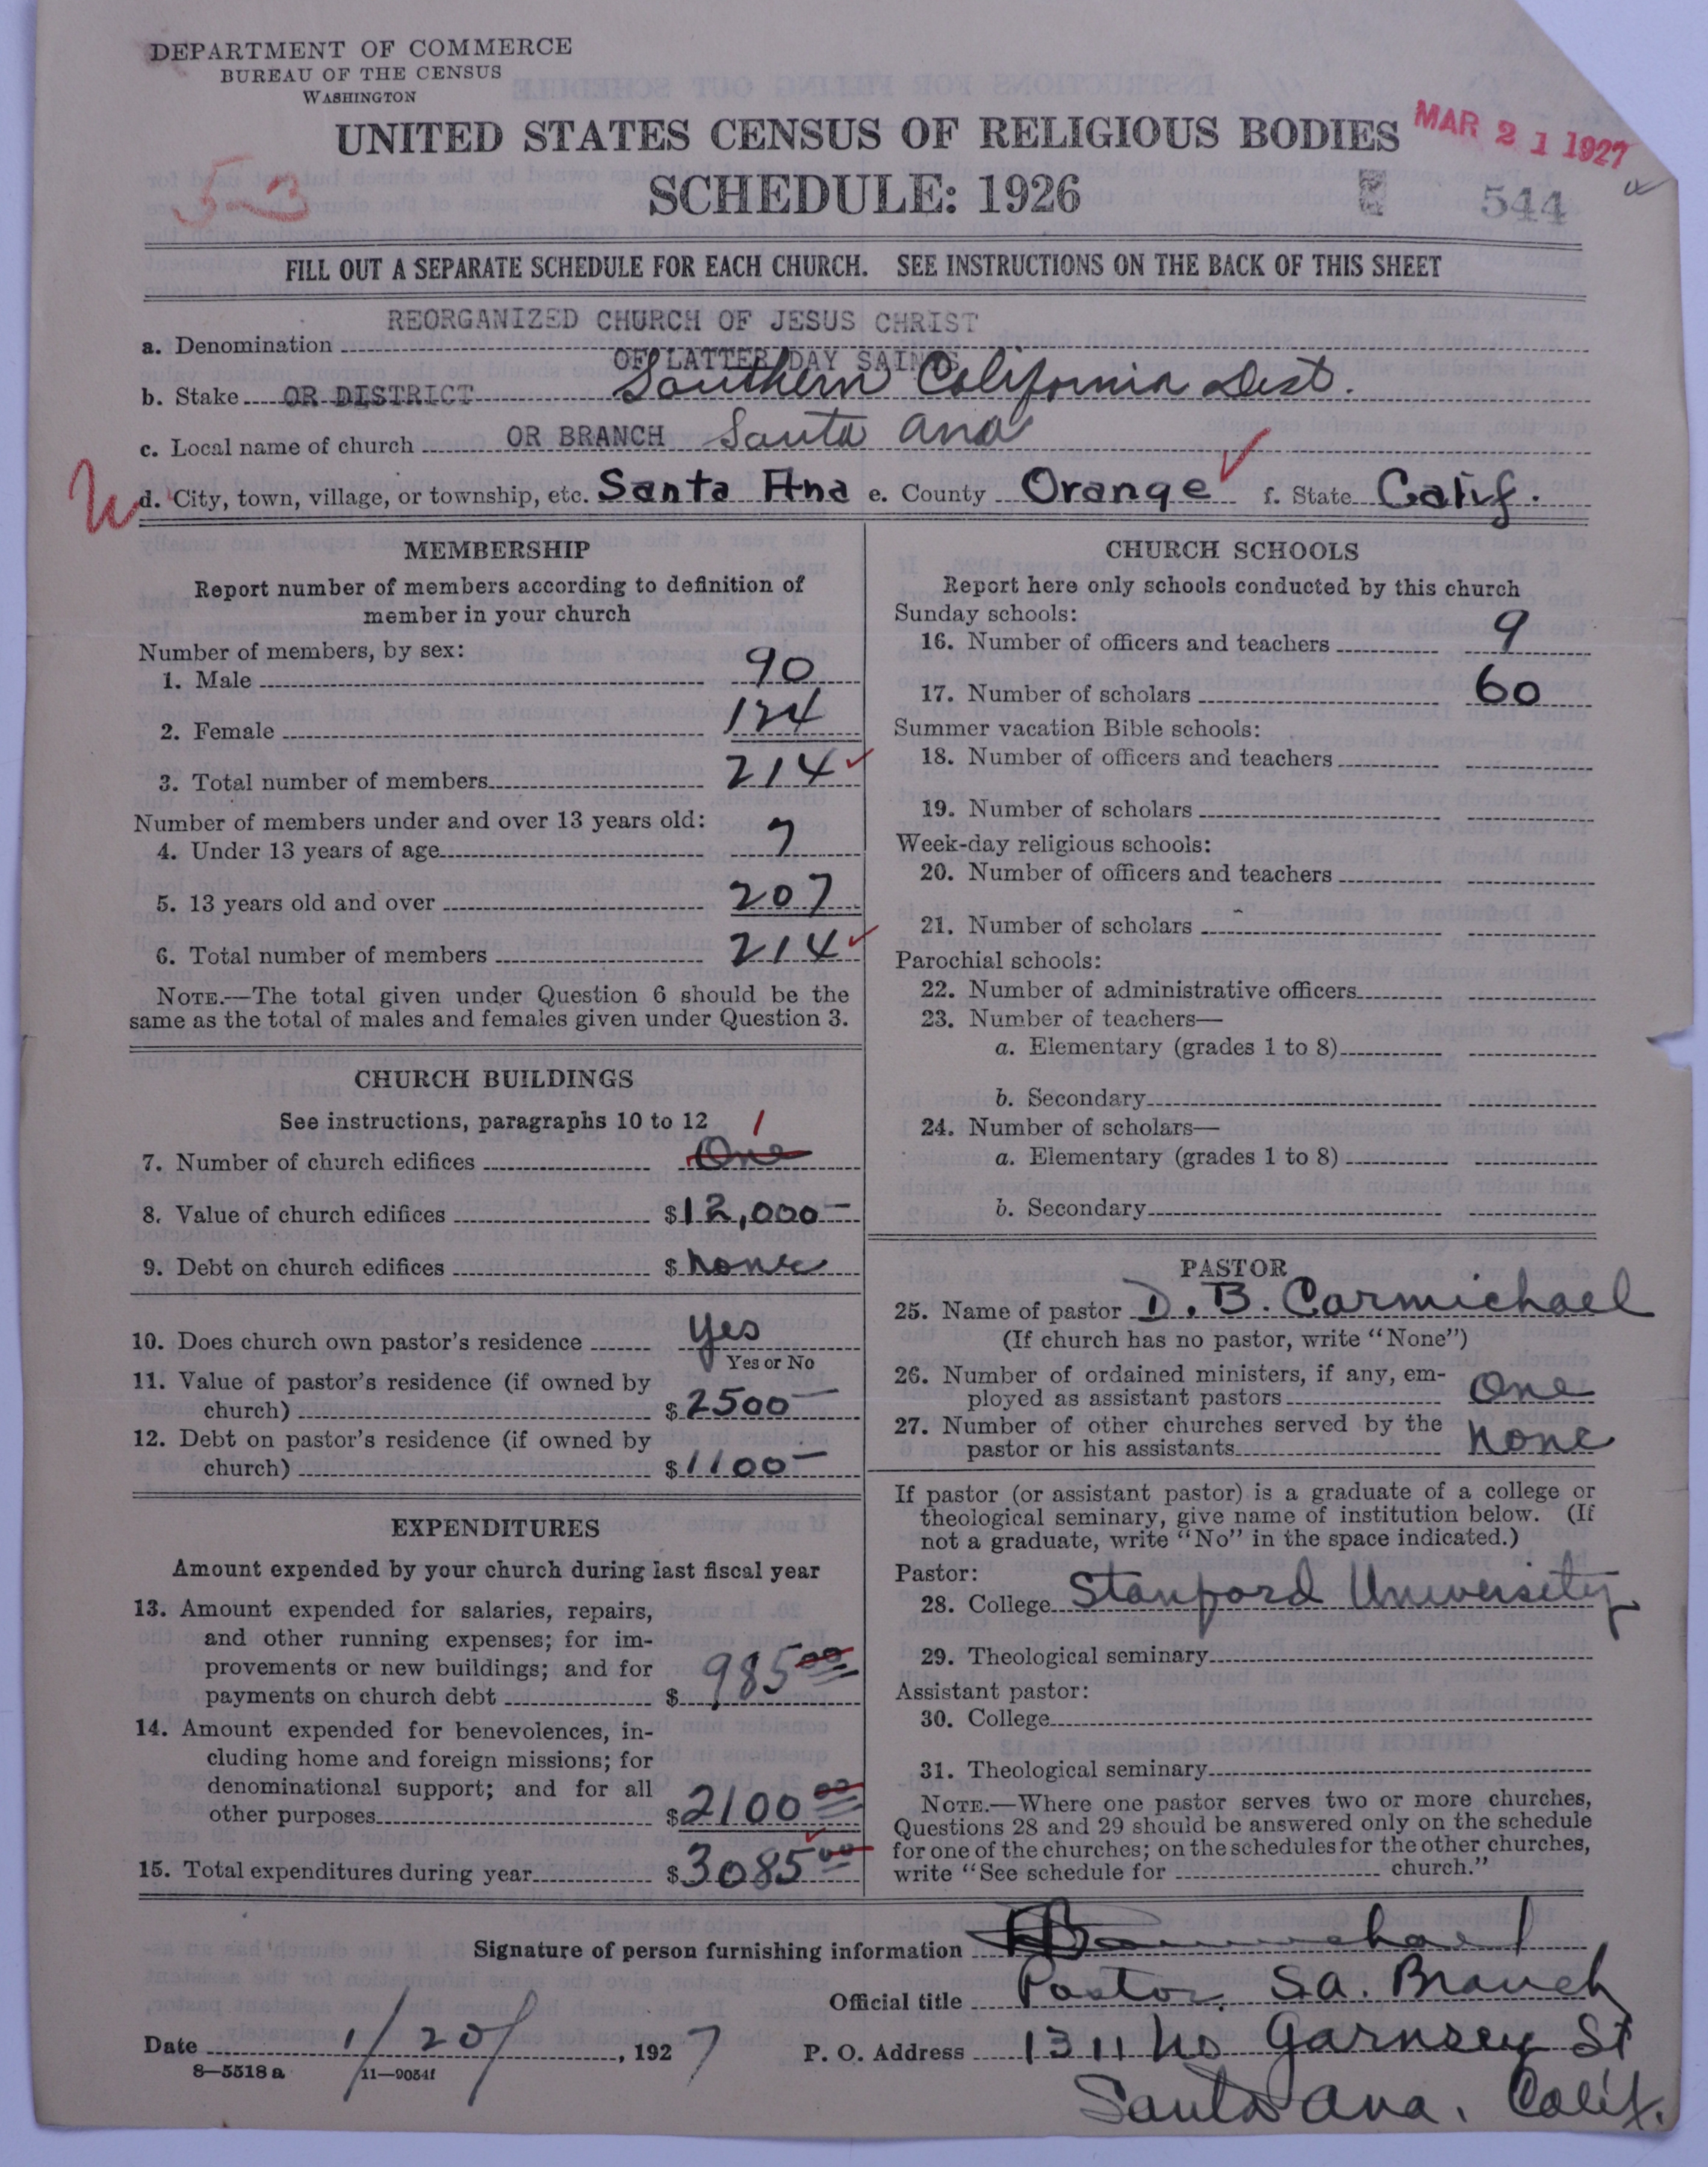 DEPARTMENT OF COMMERCE
BUREAU OF THE CENSUS
WASHINGTON
UNITED STATES CENSUS OF RELIGIOUS BODIES
MAR 21 1927
SCHEDULE: 1926
53
544
FILL OUT A SEPARATE SCHEDULE FOR EACH CHURCH. SEE INSTRUCTIONS ON THE BACK OF THIS SHEET
REORGANIZED CHURCH OF JESUS CHRIST
a. Denomination
OF LATTER DAY SAINTS
b. Stake OR DISTRICT Southern California Dist.
c. Local name of church OR BRANCH Santa Ana
d. City, town, village, or township, etc. Santa Ana e. County Orange f. State Calif.
MEMBERSHIP
Report number of members according to definition of
member in your church
Number of members, by sex:
1. Male 90
2. Female 124
3. Total number of members 214
Number of members under and over 13 years old:
4. Under 13 years of age 7
5. 13 years old and over 207
6. Total number of members 214
NOTE.—The total given under Question 6 should be the
same as the total of males and females given under Question 3.
CHURCH BUILDINGS
See instructions, paragraphs 10 to 12
1
7. Number of church edifices One
8. Value of church edifices $12,000-
9. Debt on church edifices $ none
10. Does church own pastor's residence Yes
Yes or No
11. Value of pastor's residence (if owned by
church) $2500-
12. Debt on pastor's residence (if owned by
church) $1100-
EXPENDITURES
Amount expended by your church during last fiscal year
13. Amount expended for salaries, repairs,
and other running expenses; for im-
provements or new buildings; and for
payments on church debt $ 985 00
14. Amount expended for benevolences, in-
cluding home and foreign missions; for
denominational support; and for all
other purposes $2100 00
15. Total expenditures during year $3085 00
CHURCH SCHOOLS
Report here only schools conducted by this church
Sunday schools:
16. Number of officers and teachers 9
17. Number of scholars 60
Summer vacation Bible schools:
18. Number of officers and teachers
19. Number of scholars
Week-day religious schools:
20. Number of officers and teachers
21. Number of scholars
Parochial schools:
22. Number of administrative officers
23. Number of teachers—
a. Elementary (grades 1 to 8)
b. Secondary
24. Number of scholars—
a. Elementary (grades 1 to 8)
b. Secondary
PASTOR
25. Name of pastor D. B. Carmichael
(If church has no pastor, write "None")
26. Number of ordained ministers, if any, em-
ployed as assistant pastors One
27. Number of other churches served by the
pastor or his assistants None
If pastor (or assistant pastor) is a graduate of a college or
theological seminary, give name of institution below. (If
not a graduate, write "No" in the space indicated.)
Pastor:
28. College Stanford University
29. Theological seminary
Assistant pastor:
30. College
31. Theological seminary
NOTE.—Where one pastor serves two or more churches,
Questions 28 and 29 should be answered only on the schedule
for one of the churches; on the schedules for the other churches,
write "See schedule for church."
Signature of person furnishing information DB Carmichael
Official title Pastor. Sa. Branch
Date 1/20/, 1927 P. O. Address 1311 No Garnsey St
8—5518 a 11—9034f
Santa Ana, Calif.